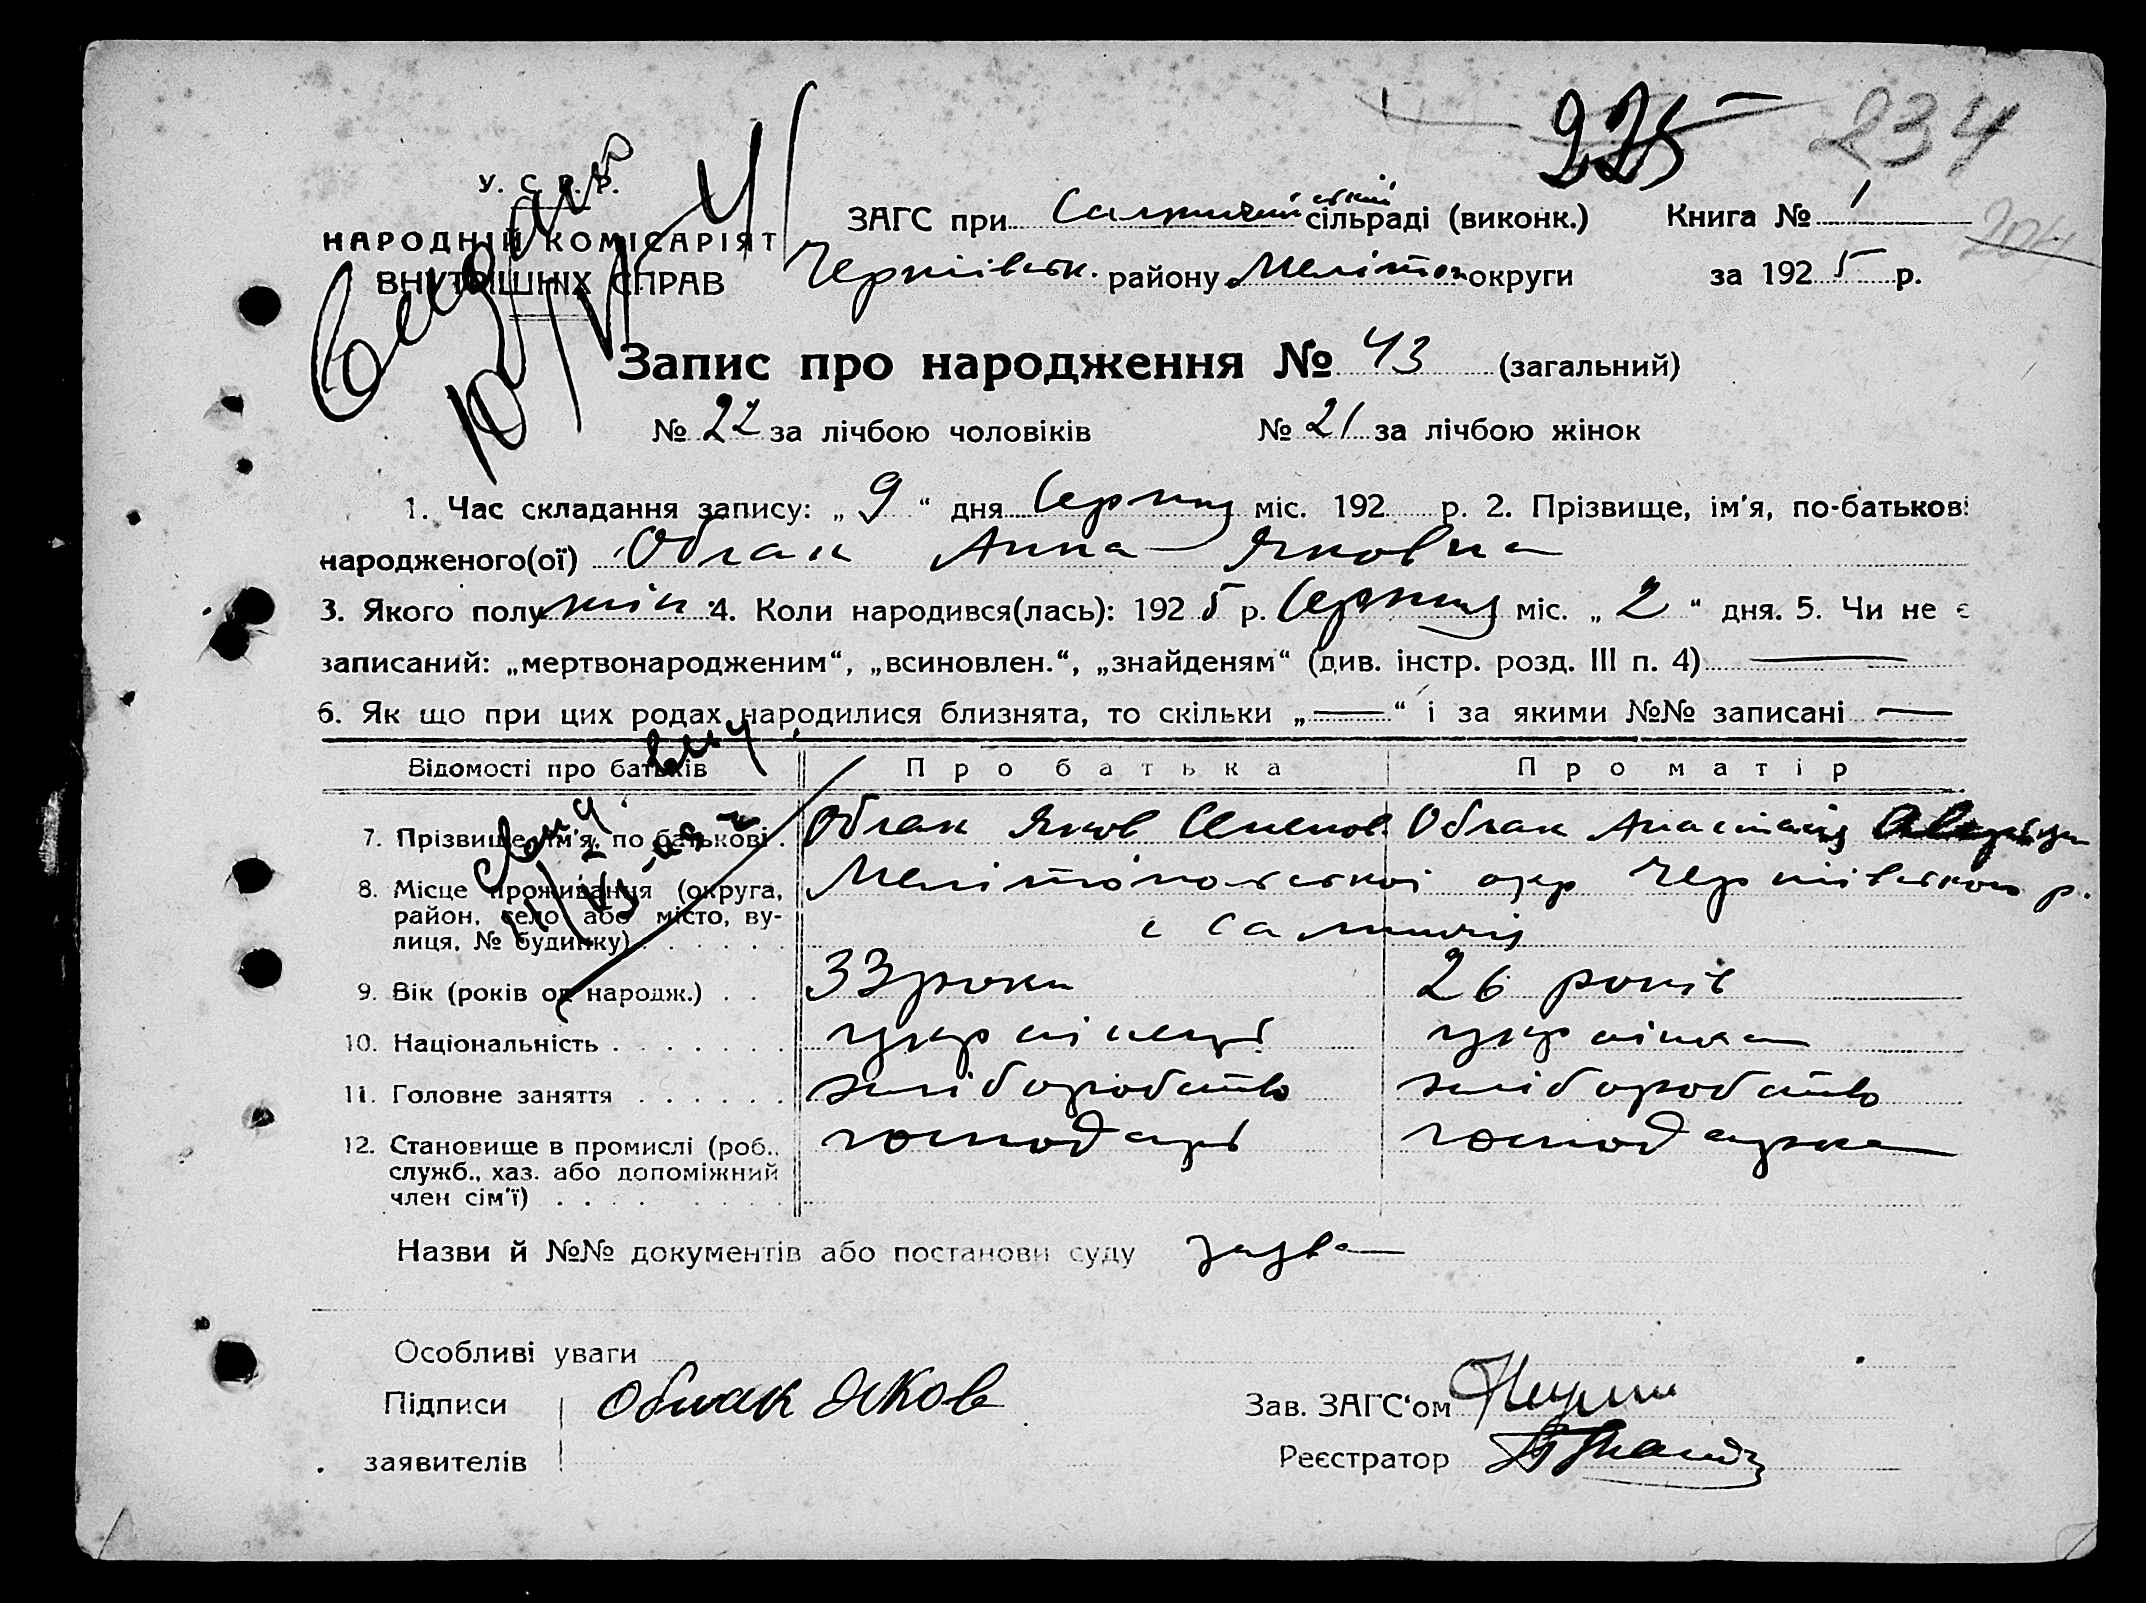 225 234
У. С. Р. Р.
НАРОДНІЙ КОМІСАРІЯТ
ВНУТРІШНІХ СПРАВ
ЗАГС при сільраді (виконк.) Книга № 1
204
Чернігівськ. району Меліто округи за 1925 р.
Запис про народження № 43 (загальний)
№ 22 за лічбою чоловіків № 21 за лічбою жінок
1. Час складання запису: „ 9 “ дня Серпня міс. 192 р. 2. Прізвище, ім'я, по-батькові
народженого(ої) Облак Анна Яковна
3. Якого полу жін. 4. Коли народився(лась): 1925 р. Серпня міс. „ 2 “ дня. 5. Чи не є
записаний: „мертвонародженим“, „всиновлен.“, „знайденям“ (див. інстр. розд. III п. 4) —
6. Як що при цих родах народилися близнята, то скільки „ — “ і за якими №№ записані —
Відомості про батьків Про батька Про матір
7. Прізвище, ім'я, по батькові . Облак Яков Семенов Облак Анастасія
8. Місце проживання (округа, район, село або місто, ву-
лиця, № будинку) . . . . . Мелітопольської окр Чернігівського р.
с
9. Вік (років од народж.) . . 33 роки 26 років
10. Національність . . . . . . . українець українка
11. Головне заняття . . . . . . хліборобство хліборобство
12. Становище в промислі (роб., господарь господарка
служб., хаз. або допоміжний
член сім'ї) . . . . . . . .
Назви й №№ документів або постанови суду заява
Особливі уваги
Підписи Облак Яков Зав. ЗАГС'ом
заявителів Реєстратор